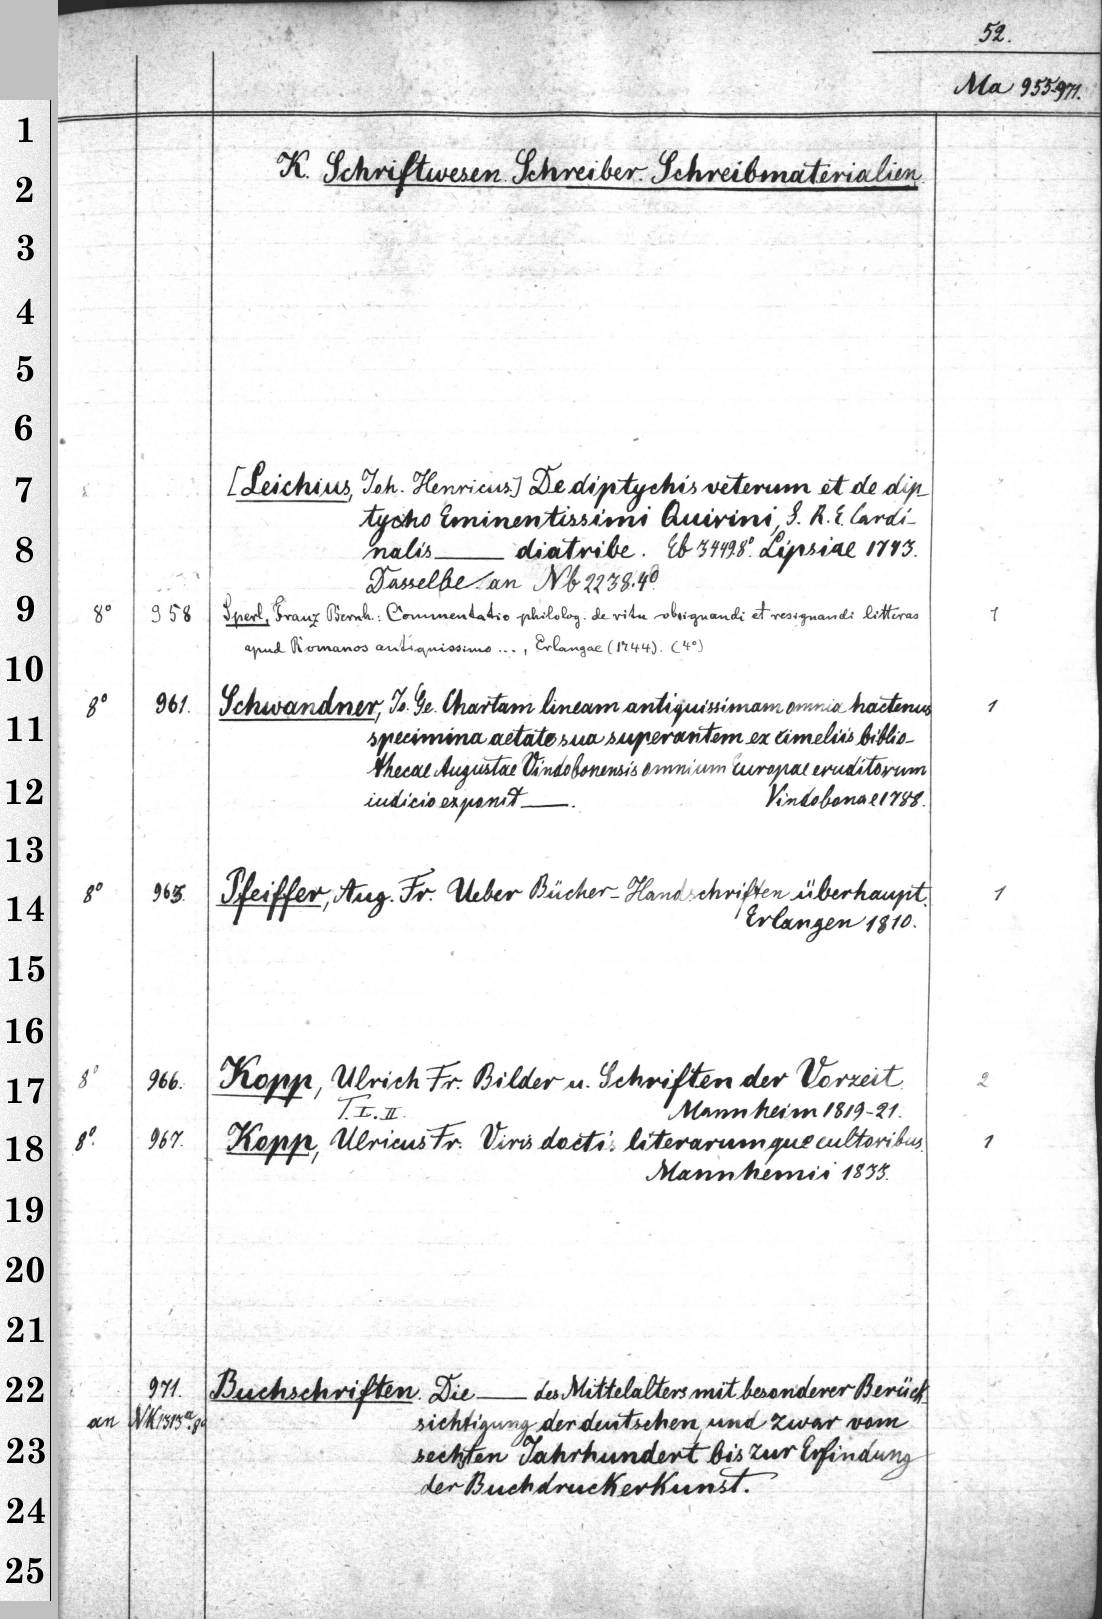 52.
Ma 955-971.
1
K. Schriftwesen. Schreiber. Schreibmaterialien.
2
3
4
5
6
7 [Leichius, Joh. Henricus] De diptychis veterum et de dip-
tycho Eminentissimi Quirini, S. R. E. Cardi-
8 nalis ___ diatribe. Eb 3449 8° Lipsiae 1743.
Dasselbe an Nb 2238. 4°
9 8° 958 Sperl, Franz Bernh.: Commentatio philolog. de ritu obsignandi et resignandi litteras 1
apud Romanos antiquissimo ..., Erlangae (1744). (4°)
10
8° 961. Schwandner, Jo. Ge. Chartam lineam antiquissimam omnia hactenus 1
11 specimina aetate sua superantem ex cimeliis biblio-
thecae Augustae Vindobonensis omnium Europae eruditorum
12 iudicio exponit ___. Vindobonae 1788.
13
14 8° 963. Pfeiffer, Aug. Fr. Ueber Bücher-Handschriften überhaupt. 1
Erlangen 1810.
15
16
17 8° 966. Kopp, Ulrich Fr. Bilder u. Schriften der Vorzeit. 2
T. I. II. Mannheim 1819-21.
18 8° 967. Kopp, Ulricus Fr. Viris doctis literarumque cultoribus. 1
Mannhemii 1833.
19
20
21
22 971. Buchschriften. Die ___ des Mittelalters mit besonderer Berück-
an NK 1313a. 8° sichtigung der deutschen, und zwar vom
23 sechsten Jahrhundert bis zur Erfindung
24 der Buchdruckerkunst.
25